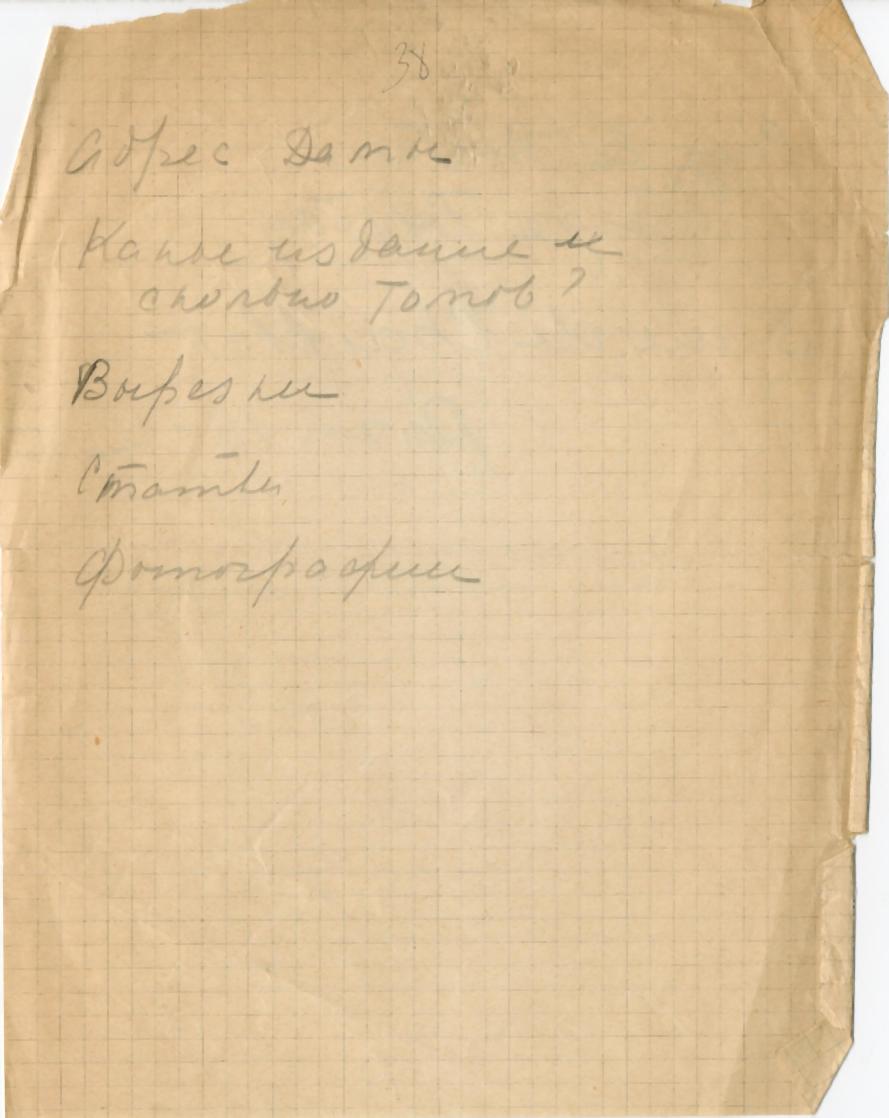 38
Адрес Дамы
Какое издание и
сколько томов?
Вырезки
Статьи
Фотографии